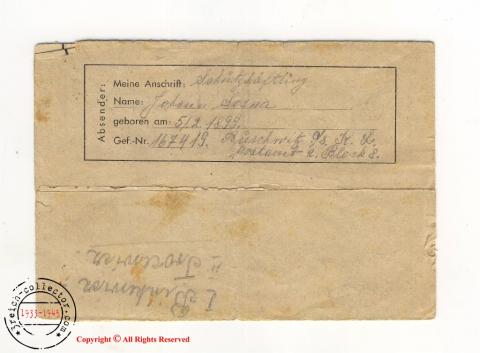 Absender:
Meine Anschrift: Schutzhäftling
Name: Johann Sosna
geboren am: 5/2. 1899.
Gef.-Nr. 167419. Auschwitz O/s. K. L.
Postamt 2. Block 8.
3reich-collector.com
1933-1945
Copyright © All Rights Reserved